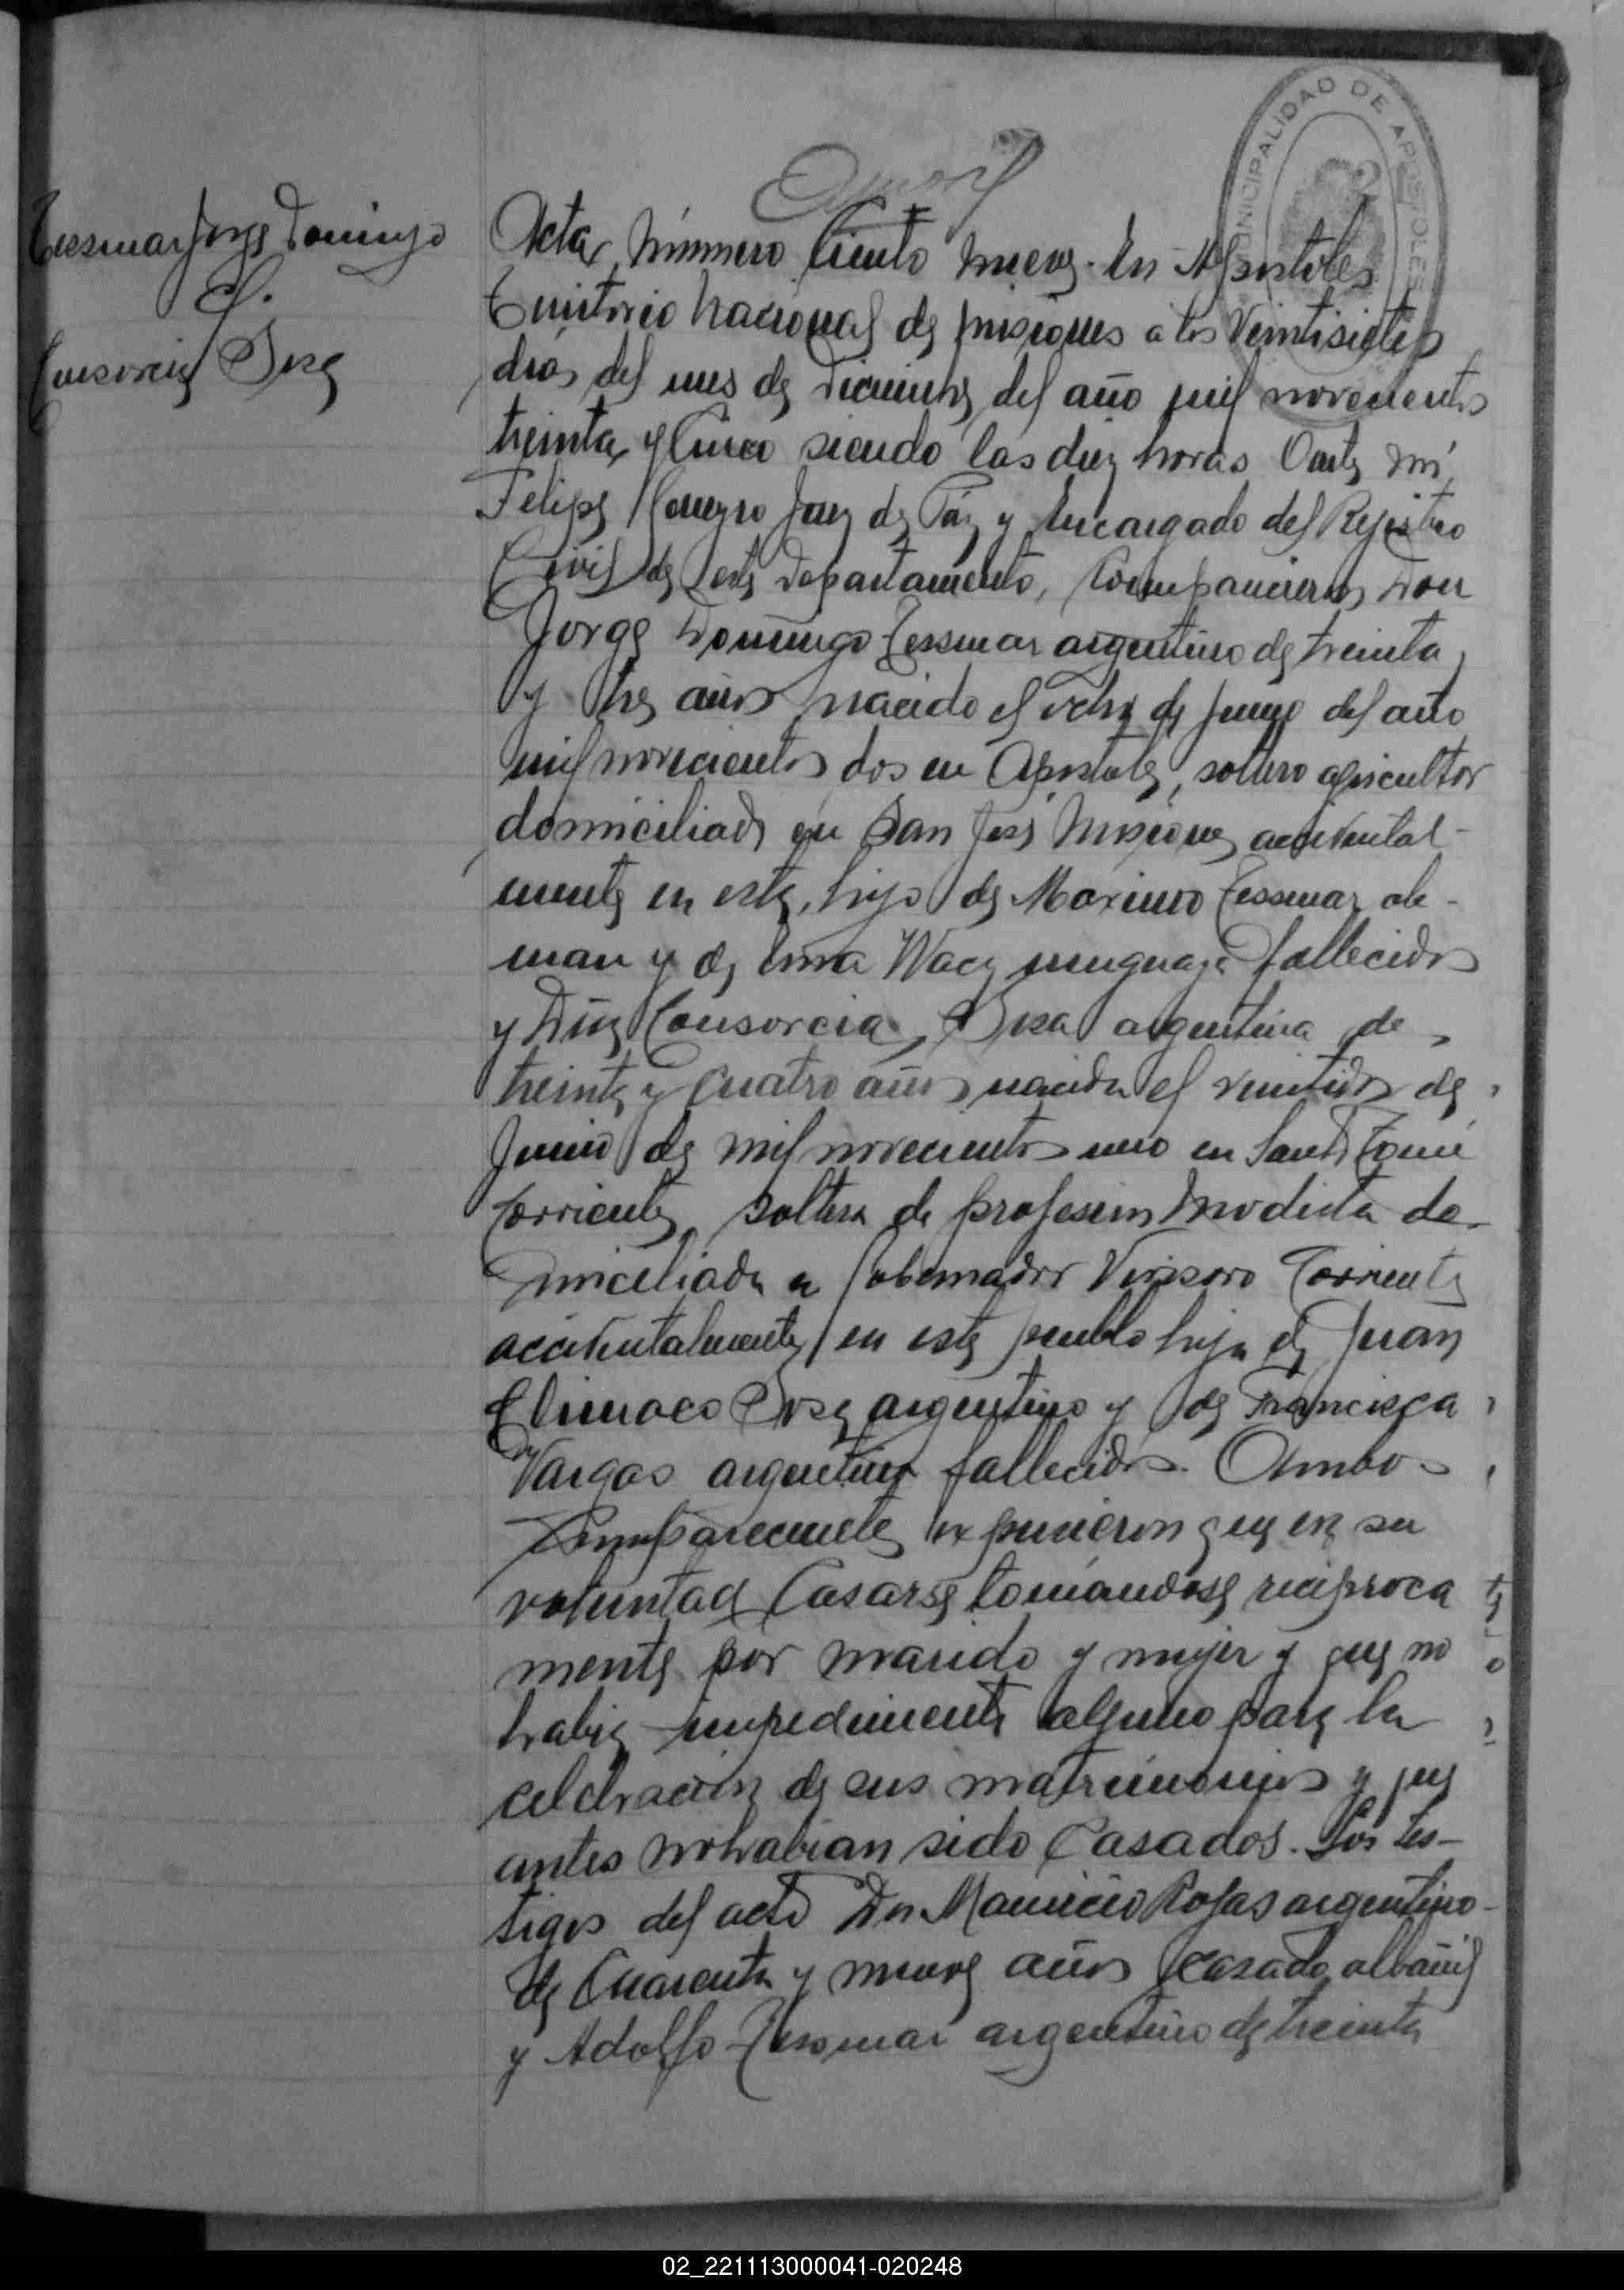 MUNICIPALIDAD DE APOSTOLES
Tessmar Jorge Domingo
C.
Consorcia Sosa
Acta Número Ciento nueve. En Apostoles
Territorio Nacional de Misiones a los Veintisiete
dias del mes de Diciembre del año mil novecientos
treinta y Cinco siendo las diez horas Ante mi
Felipe Juez de Páz y Encargado del Rejistro
Civil de este Departamento, Comparecieron Don
Jorge Domingo Tessmar argentino de treinta
y tres años nacido el ocho de Junio del año
mil novecientos dos en Apostoles, soltero agricultor
domiciliado en San José Misiones accidental-
mente en este, hijo de Maximo Tessmar ale-
man y de Ema uruguaya fallecidos
y Dña Consorcia Sosa argentina de
treinta y cuatro años nacida el veintidos de
Junio de mil novecientos uno en Santo Tomé
Corrientes, soltera de profesion Modista do-
miciliada en Gobernador Virasoro Corrientes
accidentalmente en este pueblo hija de Juan
Climaco Sosa argentino y de Francisca
Vargas argentina fallecidos. Ambos
Comparecientes expusieron que era su
voluntad Casarse tomándose reciproca
mente por marido y mujer y que no
habia impedimento alguno para la
celebración de sus matrimonios y que
antes no habian sido Casados. Los tes-
tigos del acto Don Mauricio Rojas argentino
de Cuarenta y nueve años casado albañil
y Adolfo Tessmar argentino de treinta
02_221113000041-020248